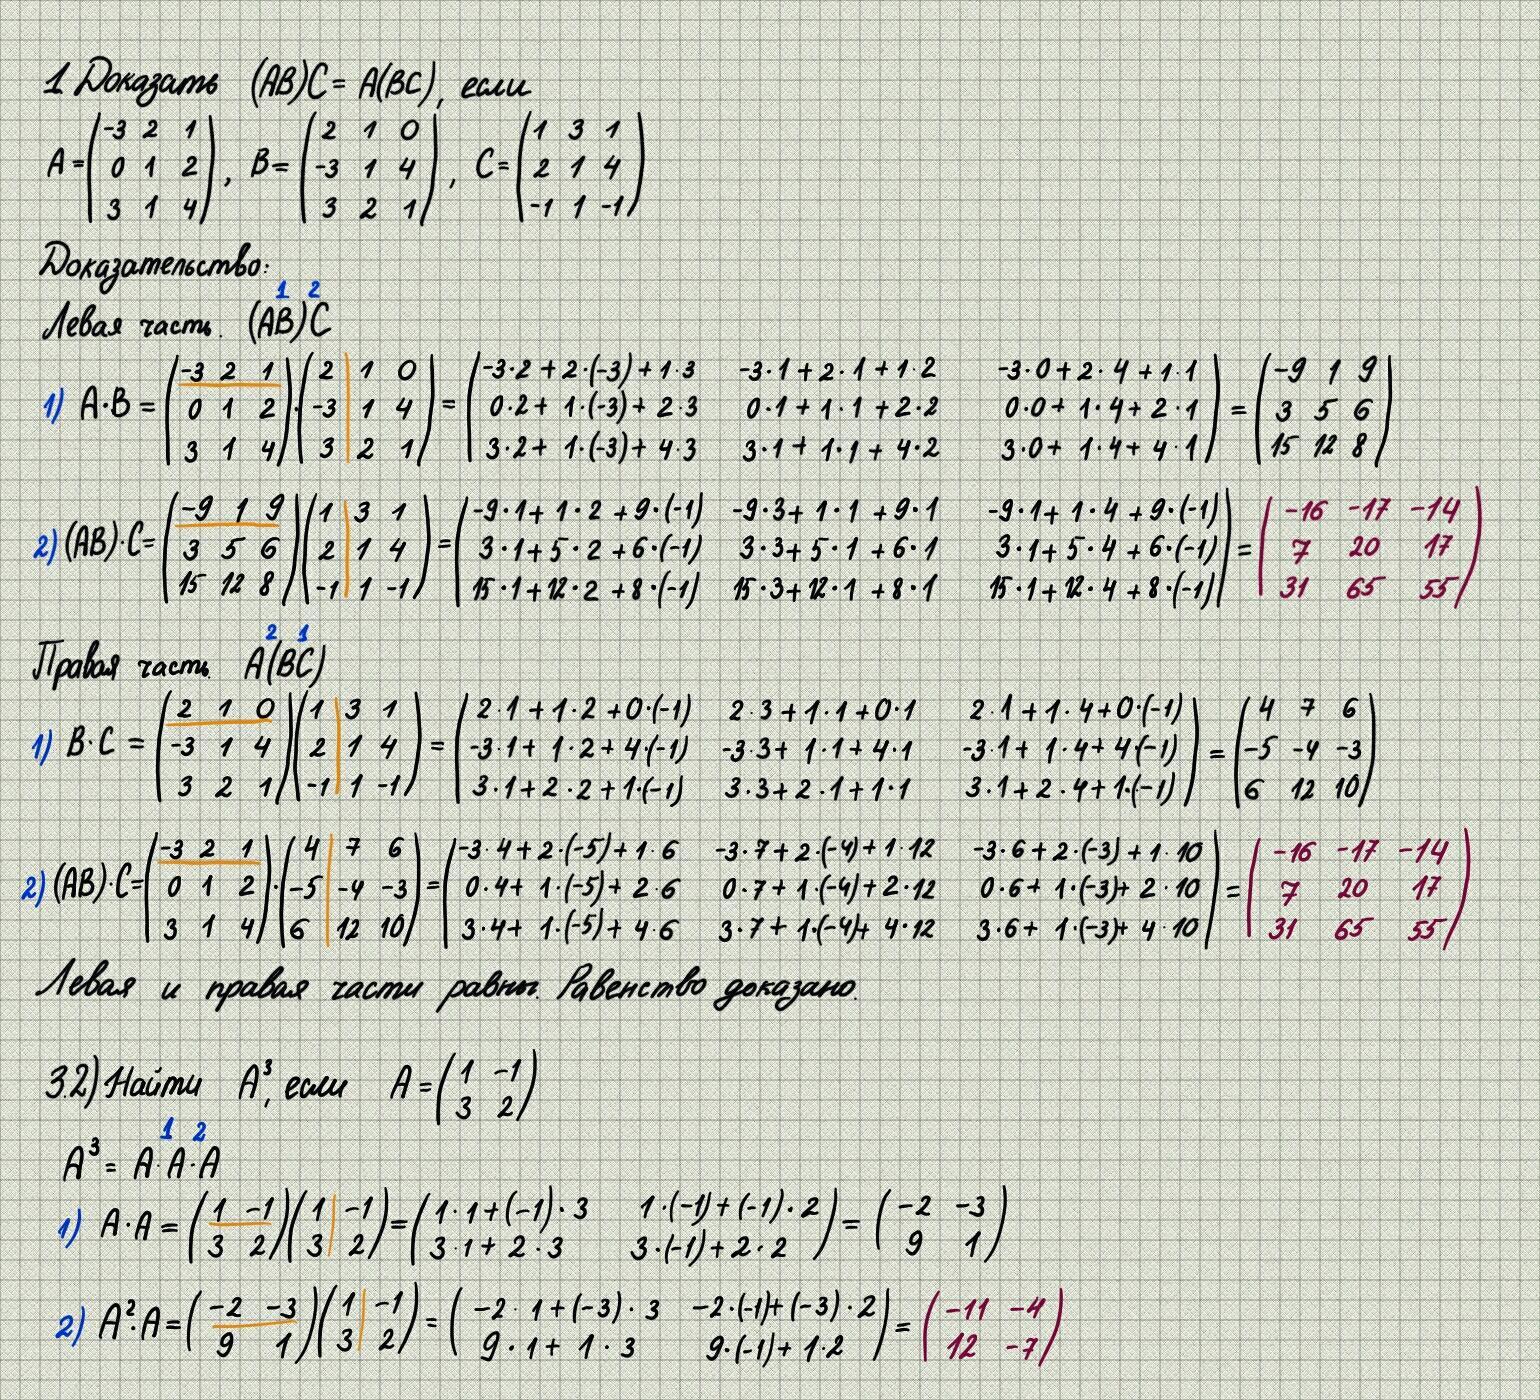 1 Доказать (AB)C = A(BC), если
A = (-3 2 1; 0 1 2; 3 1 4), B = (2 1 0; -3 1 4; 3 2 1), C = (1 3 1; 2 1 4; -1 1 -1)
Доказательство:
1 2
Левая часть. (AB)C
1) A·B = (-3 2 1; 0 1 2; 3 1 4)·(2 1 0; -3 1 4; 3 2 1) = (-3·2+2·(-3)+1·3 -3·1+2·1+1·2 -3·0+2·4+1·1; 0·2+1·(-3)+2·3 0·1+1·1+2·2 0·0+1·4+2·1; 3·2+1·(-3)+4·3 3·1+1·1+4·2 3·0+1·4+4·1) = (-9 1 9; 3 5 6; 15 12 8)
2) (AB)·C = (-9 1 9; 3 5 6; 15 12 8)(1 3 1; 2 1 4; -1 1 -1) = (-9·1+1·2+9·(-1) -9·3+1·1+9·1 -9·1+1·4+9·(-1); 3·1+5·2+6·(-1) 3·3+5·1+6·1 3·1+5·4+6·(-1); 15·1+12·2+8·(-1) 15·3+12·1+8·1 15·1+12·4+8·(-1)) = (-16 -17 -14; 7 20 17; 31 65 55)
2 1
Правая часть. A(BC)
1) B·C = (2 1 0; -3 1 4; 3 2 1)(1 3 1; 2 1 4; -1 1 -1) = (2·1+1·2+0·(-1) 2·3+1·1+0·1 2·1+1·4+0·(-1); -3·1+1·2+4·(-1) -3·3+1·1+4·1 -3·1+1·4+4·(-1); 3·1+2·2+1·(-1) 3·3+2·1+1·1 3·1+2·4+1·(-1)) = (4 7 6; -5 -4 -3; 6 12 10)
2) (AB)·C = (-3 2 1; 0 1 2; 3 1 4)·(4 7 6; -5 -4 -3; 6 12 10) = (-3·4+2·(-5)+1·6 -3·7+2·(-4)+1·12 -3·6+2·(-3)+1·10; 0·4+1·(-5)+2·6 0·7+1·(-4)+2·12 0·6+1·(-3)+2·10; 3·4+1·(-5)+4·6 3·7+1·(-4)+4·12 3·6+1·(-3)+4·10) = (-16 -17 -14; 7 20 17; 31 65 55)
Левая и правая части равны. Равенство доказано.
3.2) Найти A³, если A = (1 -1; 3 2)
1 2
A³ = A·A·A
1) A·A = (1 -1; 3 2)(1 -1; 3 2) = (1·1+(-1)·3 1·(-1)+(-1)·2; 3·1+2·3 3·(-1)+2·2) = (-2 -3; 9 1)
2) A²·A = (-2 -3; 9 1)(1 -1; 3 2) = (-2·1+(-3)·3 -2·(-1)+(-3)·2; 9·1+1·3 9·(-1)+1·2) = (-11 -4; 12 -7)